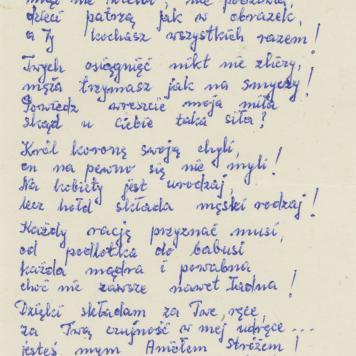 mąż nie wierci, nie podrywa,
dzieci patrzą jak w obrazek,
a Ty kochasz wszystkich razem!
Twych osiągnięć nikt nie zliczy,
męża trzymasz jak na smyczy!
Powiedz wreszcie moja miła
Skąd u Ciebie taka siła?
Król koronę swoją chyli,
on na pewno się nie myli!
Na kobiety jest urodzaj,
lecz hołd składa męski rodzaj!
Każdy rację przyznać musi,
od podlotka do babusi
każda mądra i powabna
choć nie zawsze nawet ładna!
Dzięki składam za Twe ręce,
za Twą czujność w mej udręce...
jesteś mym Aniołem Stróżem!